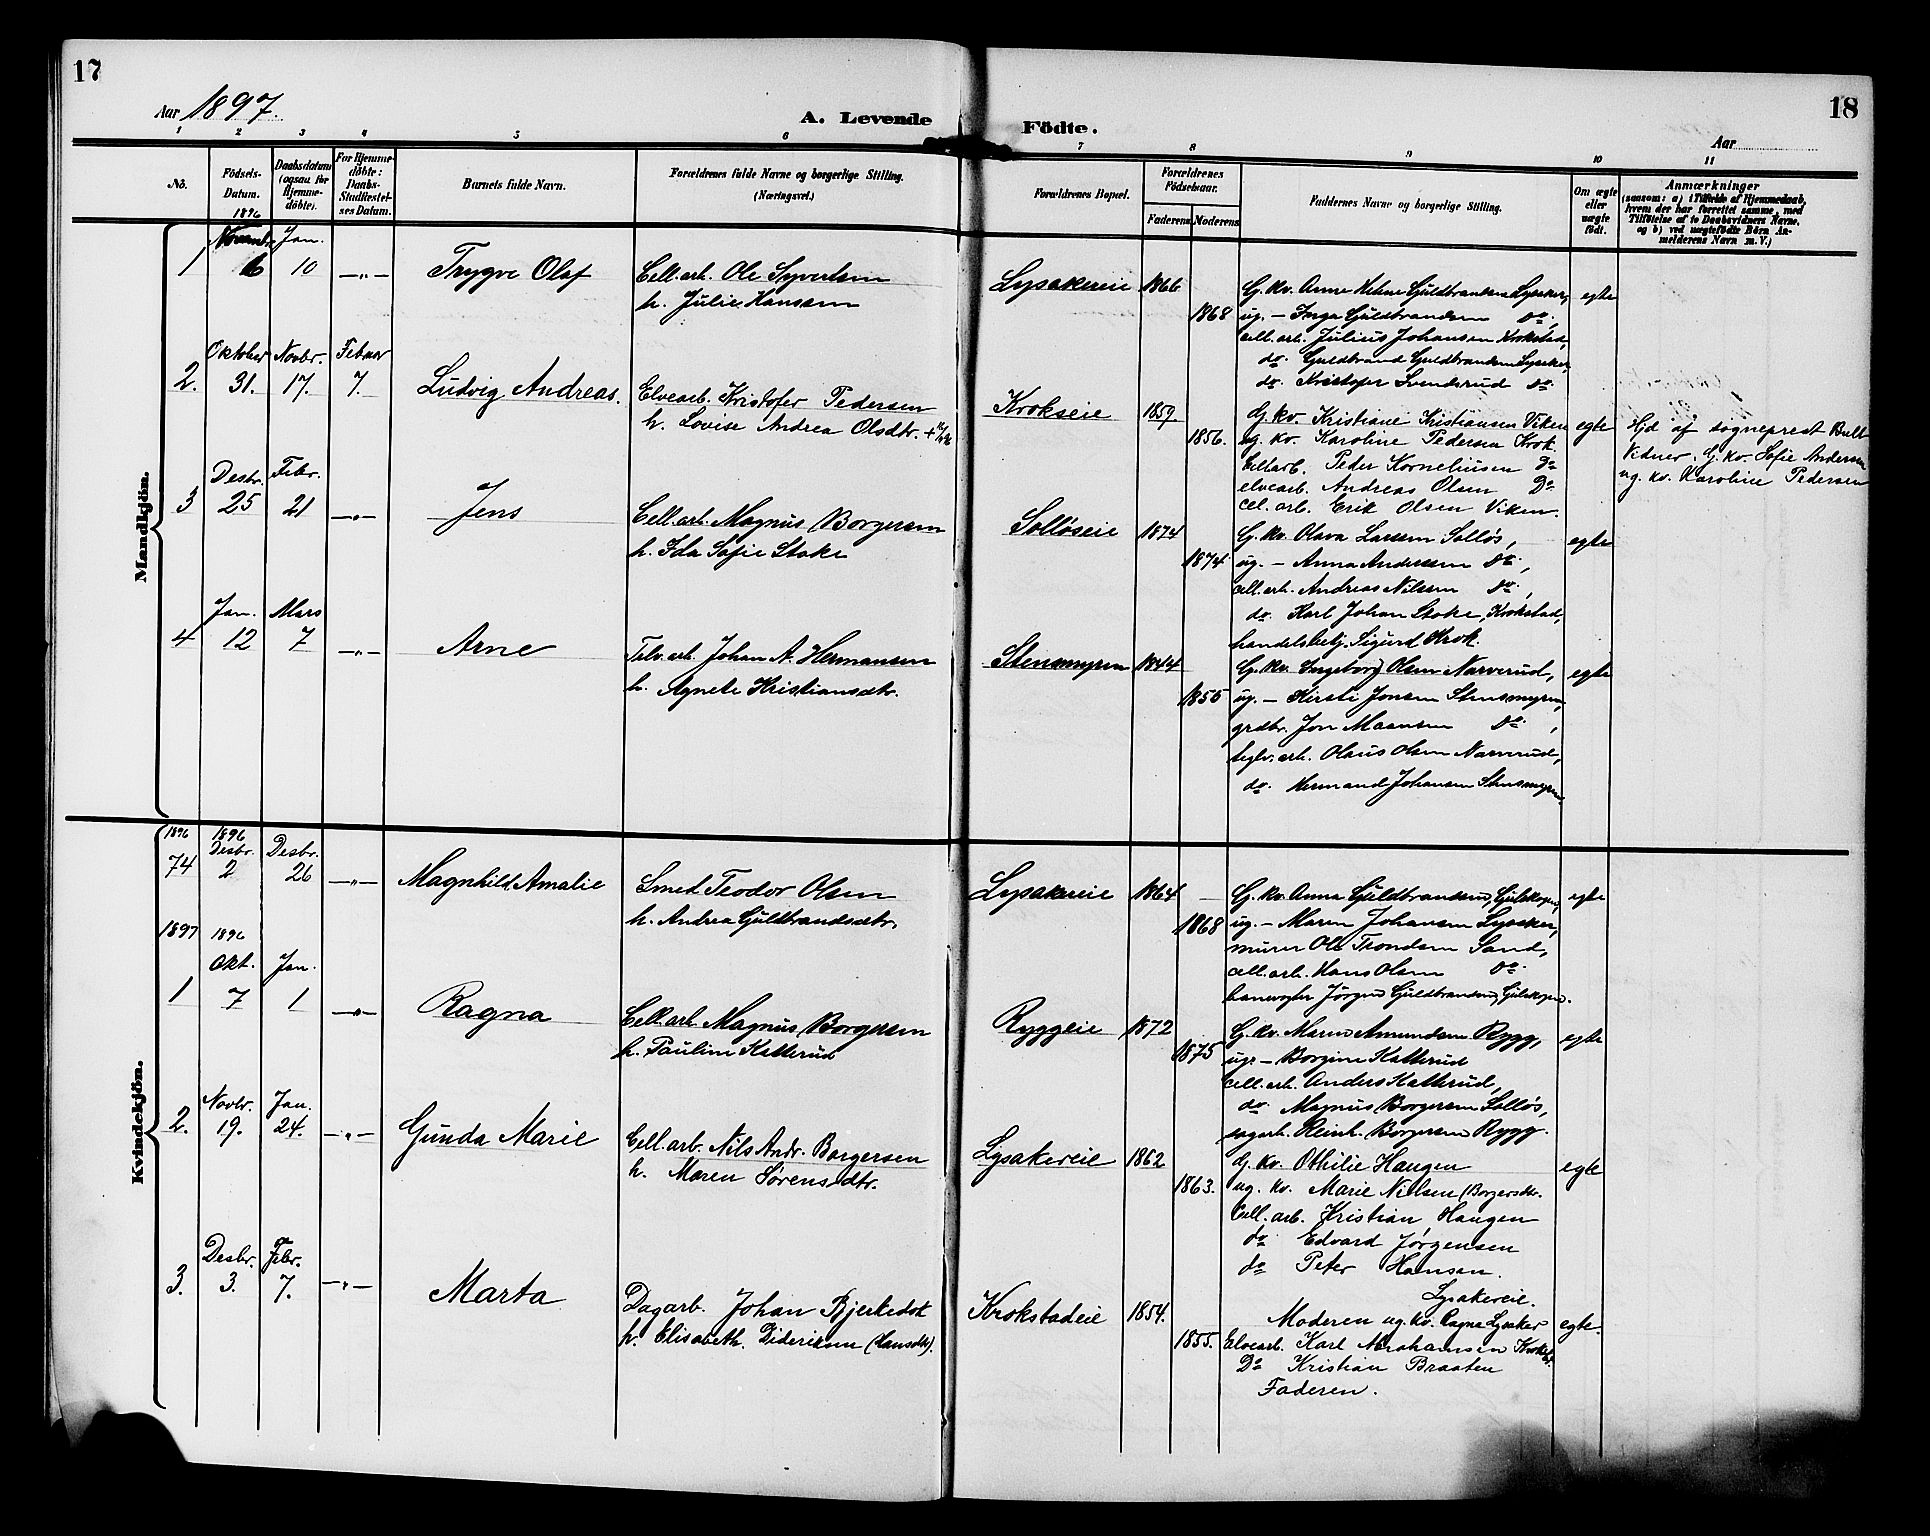 17
18
Aar 1897.
A. Levende Födte.
Aar
1 2 3 4 5 6 7 8 9 10 11
No.
Födsels-Datum.
Daabsdatum (ogsaa for Hjemme-döbte).
For Hjemme-döbte: Daabs-Stadfæstel-ses Datum.
Barnets fulde Navn.
Forældrenes fulde Navne og borgerlige Stilling. (Næringsvei.)
Forældrenes Bopæl.
Forældrenes Födselsaar.
Faderens Moderens
Faddernes Navne og borgerlige Stilling.
Om ægte eller uægte födt.
Anmærkninger
(saasom: a) i Tilfælde af Hjemmedaab, hvem der har forrettet samme, med Tilföielse af to Daabsvidners Navne. og b) ved uægtefödte Börn An-melderens Navn m. V.)
Mandkjön.
1896
Jan.
1 6 10 —"— Trygve Olaf
Cell.arb. Ole Syvertsen
h. Julie Hansen
Lysakereie 1866 1868
G. kv. Anne Helene Guldbrandsen Lysaker,
ug. — Inga Guldbrandsen do,
cell.arb. Julius Johansen Krokstad,
do. Guldbrand Guldbrandsen Lysaker,
do. Kristofer Svenderud do.
egte
Oktober Novbr. Februar
2. 31. 17. 7. Ludvig Andreas.
Elvearb. Kristofer Pedersen
h. Lovise Andrea Olsdtr. +
Krokseie 1859 1856.
G. kv. Kristiane Kristiansen Viken
ug. kv. Karoline Pedersen Krok.
Cellarb. Peder Kornelius​en Do
elvearb. Andreas Olsen Do
cel. arb. Erik Olsen Viken.
egte
Hjd af sogneprest Bull
Vidner: G. kv. Sofie Andersen
ug. kv. Karoline Pedersen
Desbr. Febr.
3 25 21 —"— Jens
Cell.arb. Magnus Borgersen
h. Ida Sofie Stoke
Solløseie 1874 1874
G. kv. Olava Larsen Solløs,
ug. — Anna Andersen do,
cell.arb. Andreas Nilsen do,
do. Karl Johan Stoke, Krokstad,
handelsbetj. Sigurd Krok.
egte
Jan. Mars
4 12 7 —"— Arne
Telv.arb. Johan A. Hermansen
h. Agnete Kristiansdtr.
Stensmyren 1844 1855
G. kv. Ingeborg Olsen Narverud,
ug. — Kirsti Jonsen Stensmyren,
grdbr. Jon Maansen do,
teglv.arb. Olaus Olsen Narverud,
do. Hermand Johansen Stensmyren.
egte
Kvindekjön.
1896 1896
Desbr. Desbr.
74 2 26 —"— Magnhild Amalie
Smed Teodor Olsen
h. Andrea Guldbrandsdtr.
Lysakereie 1864 1868
G. kv. Anna Guldbrandsen,
ug. — Maren Johansen Lysaker,
murer Ole Trondsen Sand,
cell.arb. Hans Olsen do.
banevogter Jörgen Guldbrandsen,
egte
1897 1896
Okt. Jan.
1 7 1 —"— Ragna
Cell.arb. Magnus Borgersen
h. Pauline Katterud
Ryggeie 1872 1875
G. kv. Maren Amundsen Rygg,
ug. — Borgine Katterud
cell.arb. Anders Katterud,
do. Magnus Borgersen Solløs,
sagarb. Reinh. Borgersen Rygg.
egte
Novbr. Jan.
2. 19. 24. —"— Gunda Marie
Cell.arb. Nils Andr. Borgersen
h. Maren Sørensdtr.
Lysakereie 1862 1863.
G. kv. Othilie Haugen
ug. kv. Marie Nielsen (Borgersdtr.
Cell.arb. Kristian Haugen
do Edvard Jørgensen
do Peter Hansen.
Lysakereie.
egte
Desbr. Febr.
3. 3. 7. —"— Marta
Dagarb. Johan Bjerkedok
h. Elisabeth Didriksen (Hansdtr).
Krokstadeie 1854. 1855.
Moderen ug. kv. Ragna Lysaker
Elvearb. Karl Abrahamsen
Do Kristian Braaten
Faderen.
egte.